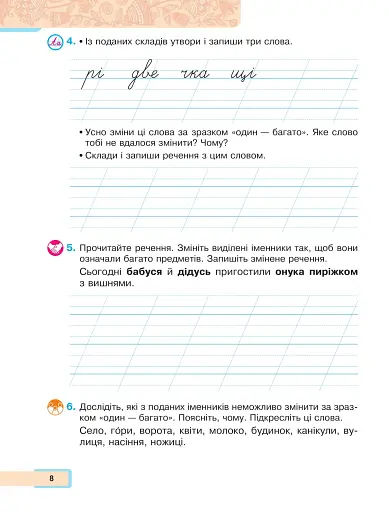 4. • Із поданих складів утвори і запиши три слова.
рі две чка щі
• Усно зміни ці слова за зразком «один — багато». Яке слово
тобі не вдалося змінити? Чому?
• Склади і запиши речення з цим словом.
5. Прочитайте речення. Змініть виділені іменники так, щоб вони
означали багато предметів. Запишіть змінене речення.
Сьогодні бабуся й дідусь пригостили онука пиріжком
з вишнями.
6. Дослідіть, які з поданих іменників неможливо змінити за зраз-
ком «один — багато». Поясніть, чому. Підкресліть ці слова.
Село, го́ри, ворота, квіти, молоко, будинок, канікули, ву-
лиця, насіння, ножиці.
8